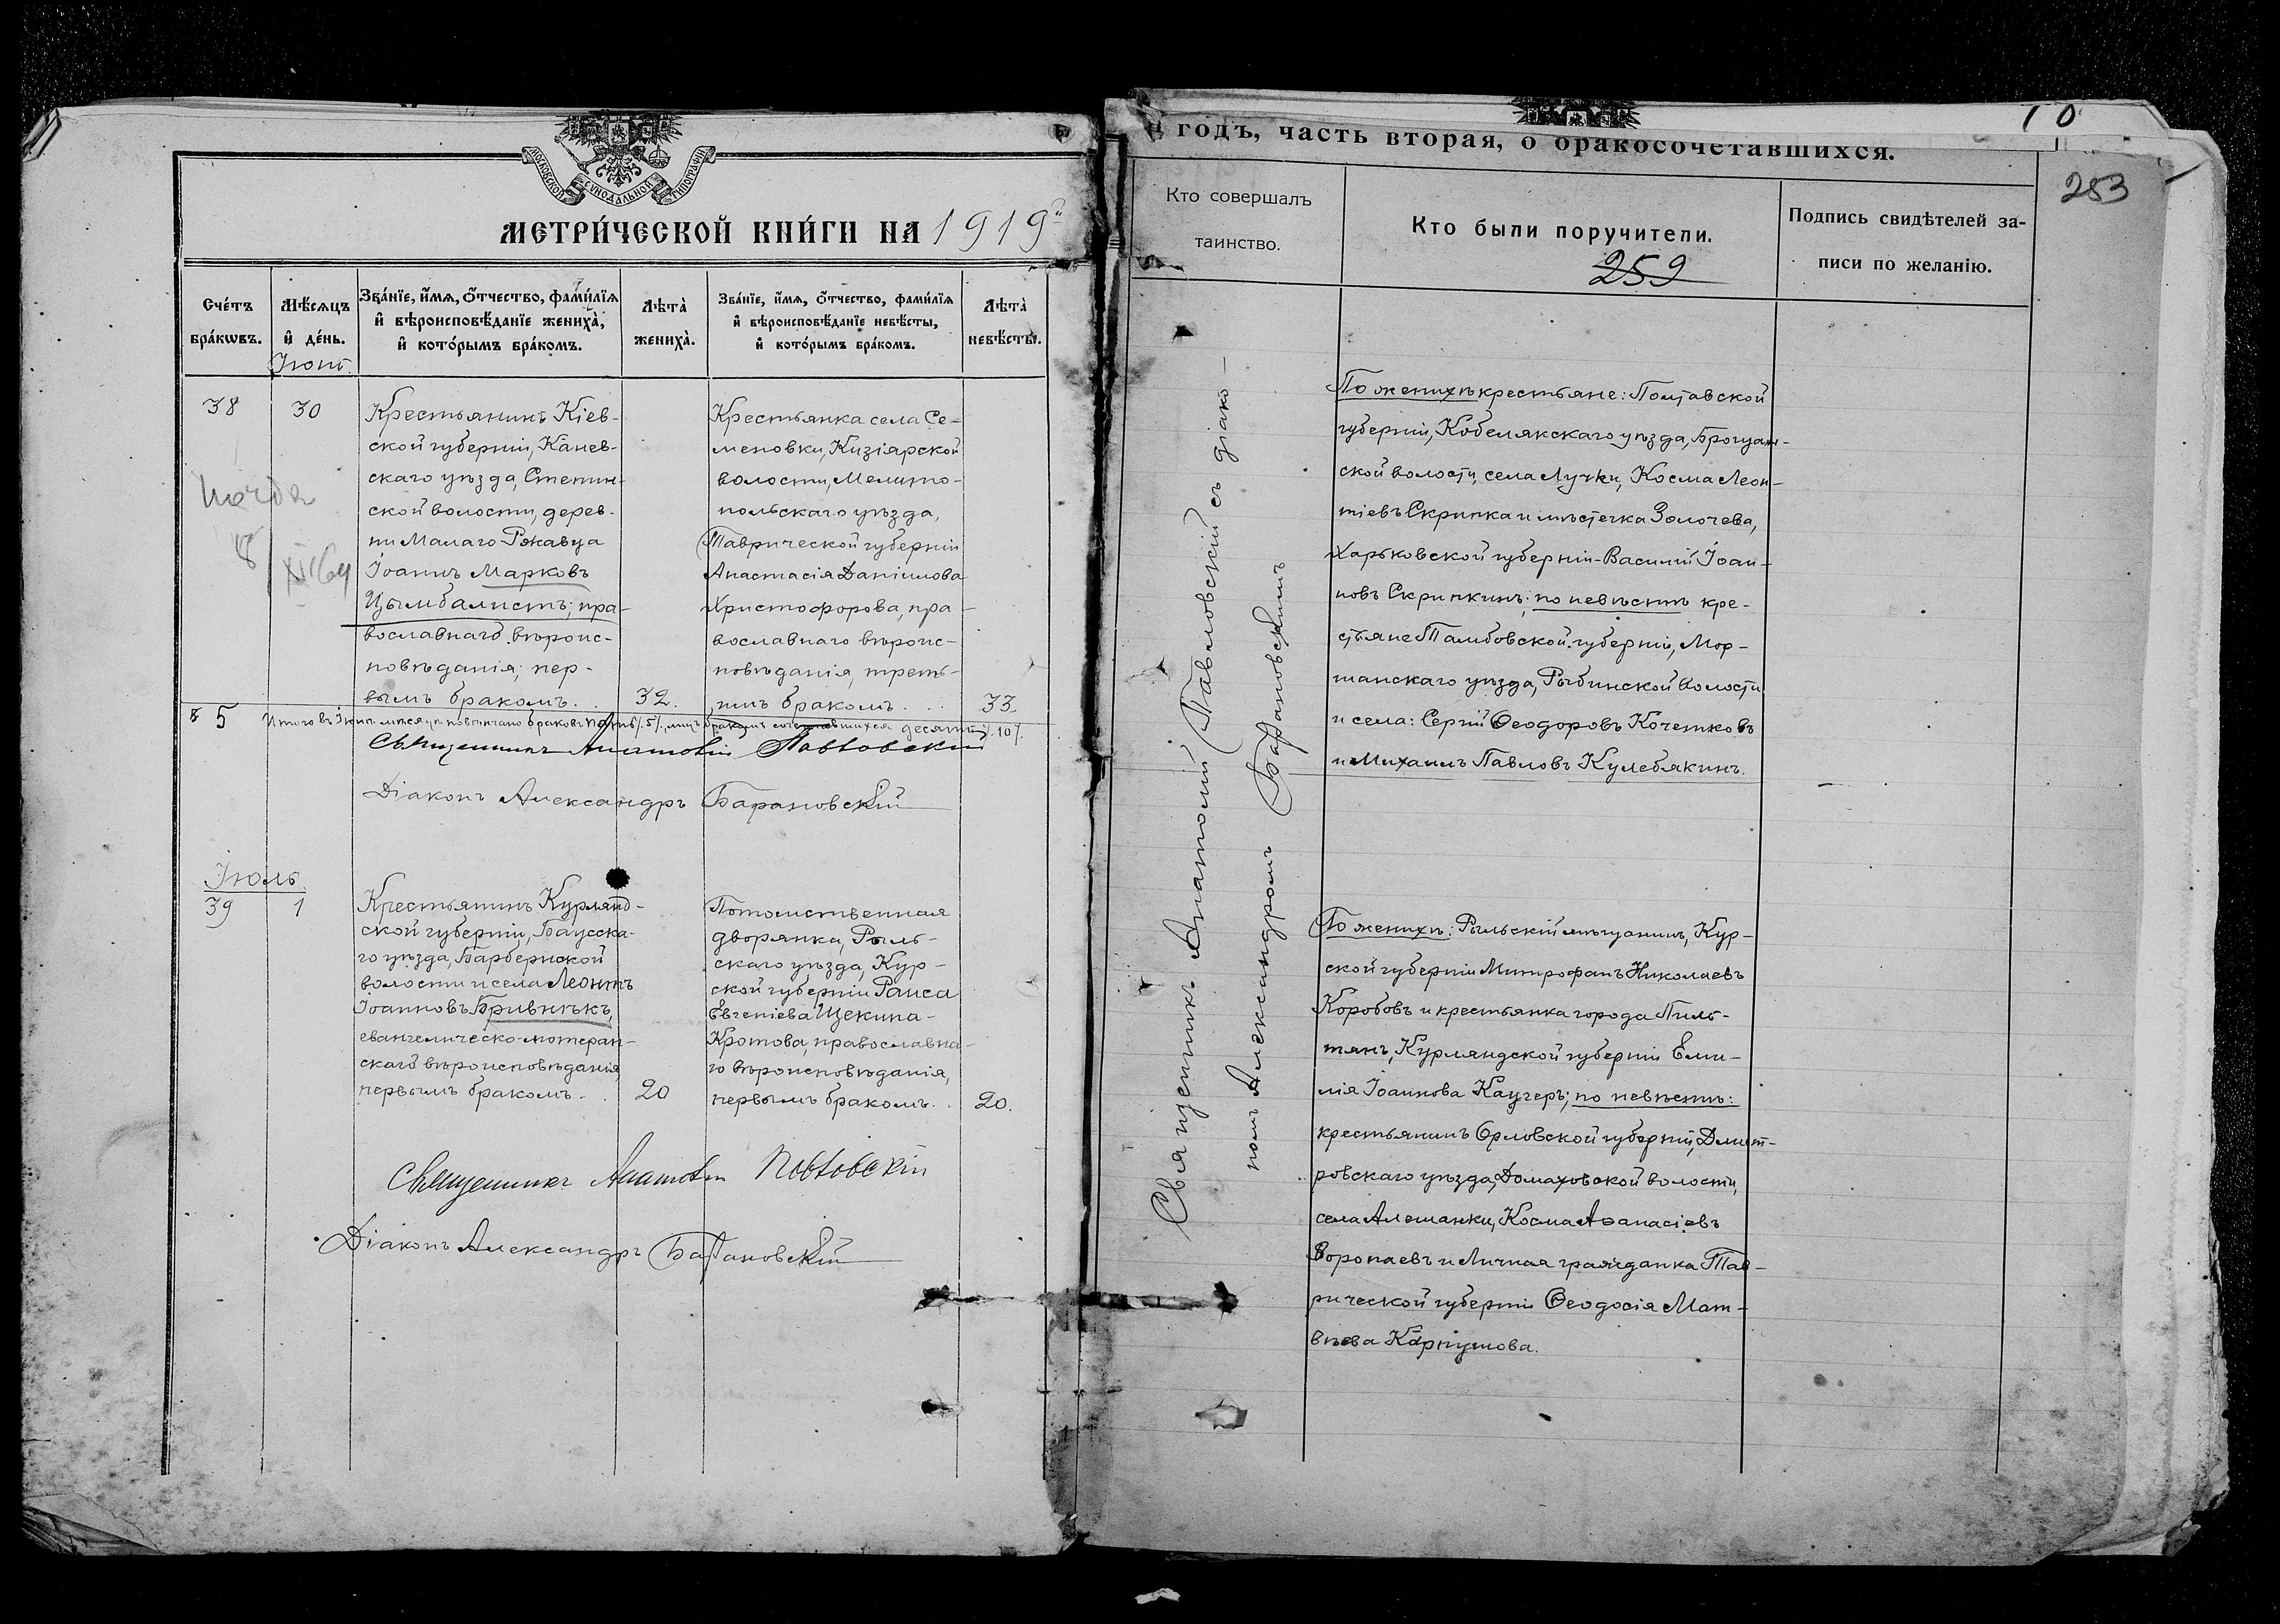 МОСКОВСКОЙ СУНОДАЛЬНОЙ ТИПОГРАФІИ
МЕТРИ́ЧЕСКОЙ КНИ́ГИ НА 1919й
Сче́тъ бра́кѡвъ.
Мѣ́сяцъ и҆ де́нь.
Зва́нїе, и҆́мѧ, ѻ҆́тчество, фамі́лїѧ и҆ вѣроисповѣ́данїе жениха̀, и҆ кото́рымъ бра́комъ.
Лѣта̀ жениха̀.
Зва́нїе, и҆́мѧ, ѻ҆́тчество, фамі́лїѧ и҆ вѣроисповѣ́данїе невѣ́сты, и҆ кото́рымъ бра́комъ.
Лѣта̀ невѣ́сты.
Іюнь.
38
30
Крестьянинъ Кіев-
ской губерніи, Канев-
скаго уѣзда, Степин-
ской волости, дерев-
ни Малаго Ржавца
Іоаннъ Марковъ
Цымбалистъ; пра-
вославнаго вѣроис-
повѣданія; пер-
вымъ бракомъ. .
32.
Крестьянка села Се-
меновки, Кизіярской
волости, Мелито-
польскаго уѣзда,
Таврической губерніи
Анастасія Даніилова
Христофорова, пра-
вославнаго вѣроис-
повѣданія, треть-
имъ бракомъ. . .
33.
8
XI 64
5 Итого въ Іюнѣ мѣсяцѣ повѣнчано браковъ пять /5/, лицъ бракомъ сочетавшихся десять /10/.
Священникъ Анатолій Павловскій
Діаконъ Александръ Барановскій
Іюль.
39
1
Крестьянинъ Курлянд-
ской губерніи, Баусска-
го уѣзда, Барберской
волости и села Леонтъ
Іоанновъ Бривнѣкъ,
евангелическо-лютеран-
скаго вѣроисповѣданія,
первымъ бракомъ. .
20
Потомственная
дворянка, Рыль-
скаго уѣзда, Кур-
ской губерніи Раиса
Евгеніева Щекина-
Кротова, православна-
го вѣроисповѣданія,
первымъ бракомъ. .
20.
Священникъ Анатолій Павловскій
Діаконъ Александръ Барановскій
й годъ, часть вторая, о бракосочетавшихся.
10
253
Кто совершалъ таинство.
Кто были поручители.
259
Подпись свидѣтелей за-
писи по желанію.
Священникъ Анатолій Павловскій съ діако-
номъ Александромъ Барановскимъ
По женихѣ крестьяне: Полтавской
губерніи, Кобелякскаго уѣзда,
ской волости, села Лучки, Косма Леон-
тіевъ Скрипка и мѣстечка Золочева,
Харьковской губерніи - Василій Іоан-
новъ Скрипкинъ; по невѣстѣ кре-
стьяне Тамбовской губерніи, Мор-
шанскаго уѣзда, Рыбинской волости
и села: Сергій Ѳеодоровъ Кочетковъ
и Михаилъ Павловъ Кулебякинъ.
По женихѣ: Рыльскій мѣщанинъ, Кур-
ской губерніи Митрофанъ Николаевъ
Коробовъ и крестьянка города Пиль-
тянъ, Курляндской губерніи Еми-
лія Іоаннова Каучеръ; по невѣстѣ:
крестьянинъ Орловской губерніи, Дмит-
ровскаго уѣзда, Домаховской волости,
села Алешанки, Косма Аѳанасіевъ
Воропаевъ и Личная гражданка Тав-
рической губерніи Ѳеодосія Мат-
вѣева Карпушова.